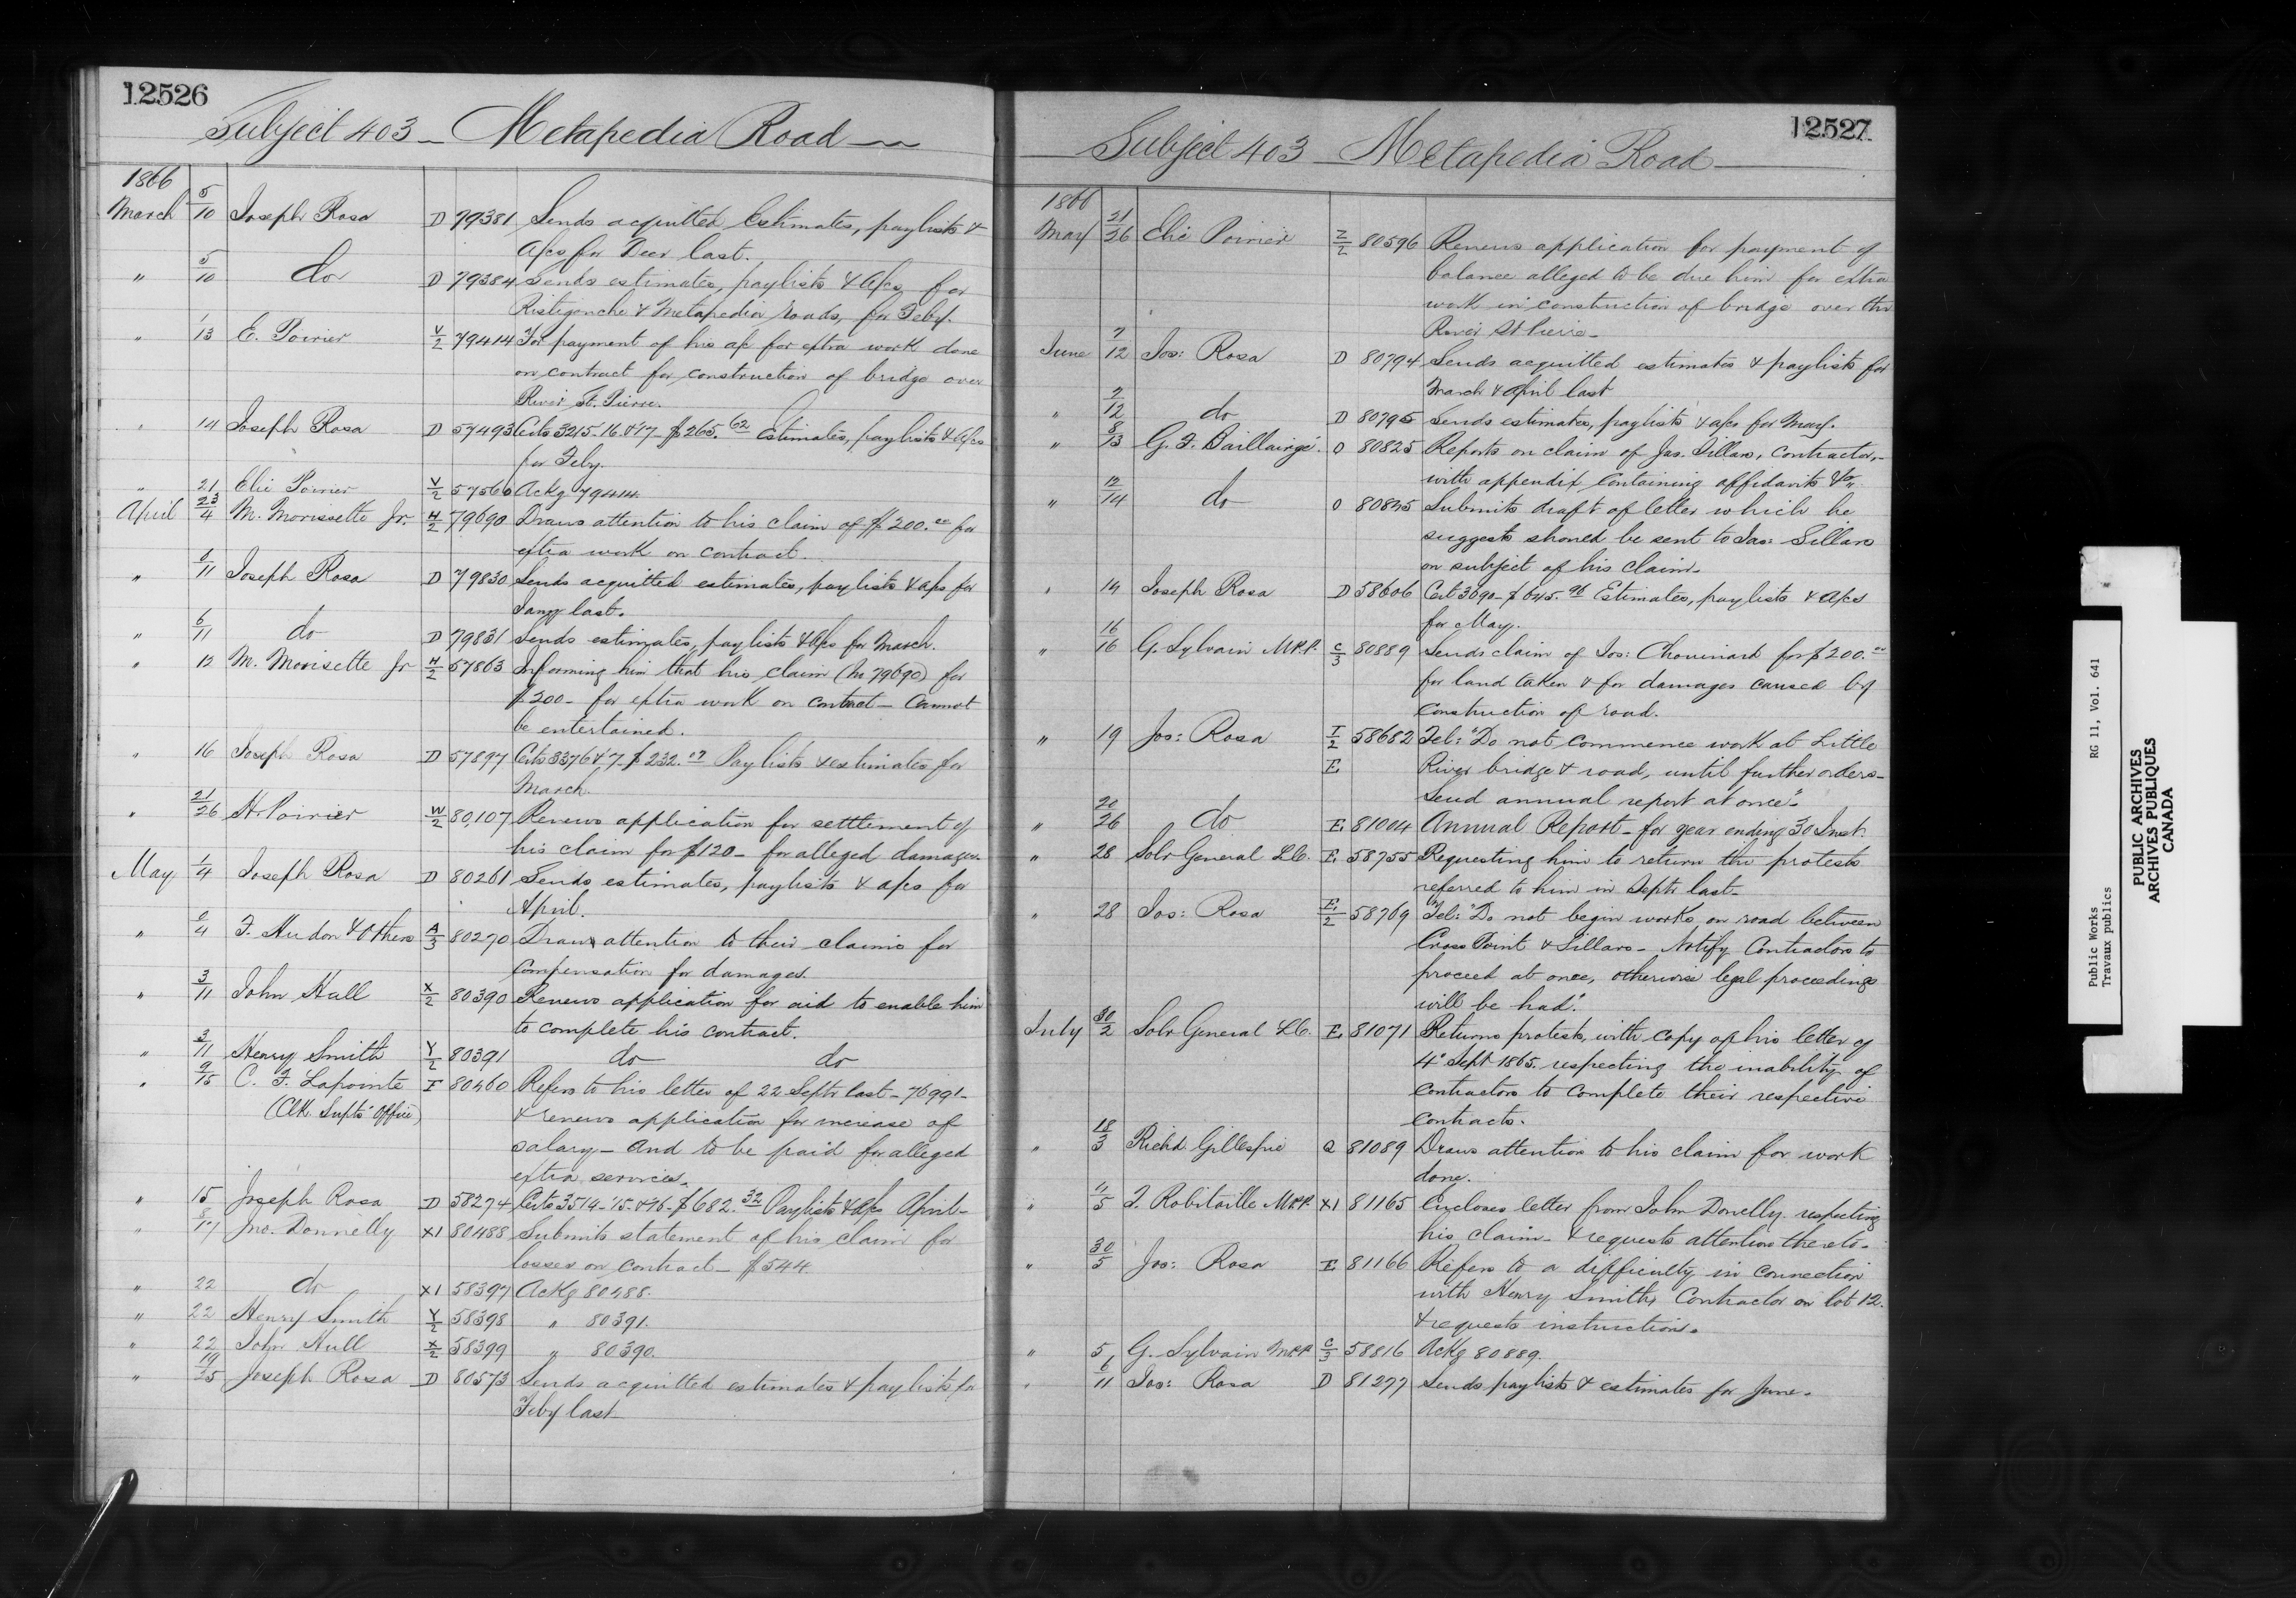 12526
Subject 403 - Metapedia Road
1866
March 5/10 Joseph Rosa D 79381 Sends acquitted Estimates, paylists &
a/cs for Decr last.
" 5/10 do D 79384 Sends estimates, paylists & a/cs for
Ristigouche & Metapedia roads, for Feby.
" 13 E. Poirier Y/2 79414 For payment of his a/c for extra work done
on contract for construction of bridge over
River St. Pierre.
" 14 Joseph Rosa D 57493 Certs 3215-16 & 17 - $265.62 Estimates, paylists & a/cs
for Feby.
" 21 Elie Poirier Y/2 57560 Ackg 79414
April 23/4 M. Morissette Jr. H/2 79690 Draws attention to his claim of $200.00 for
extra work on contract.
" 6/11 Joseph Rosa D 79830 Sends acquitted estimates, paylists & a/cs for
Jany last.
" 6/11 do D 79831 Sends estimates, paylists & a/cs for March.
" 12 M. Morisette Jr H/2 57863 Informing him that his claim (in 79690) for
$200 - for extra work on contract - cannot
be entertained.
" 16 Joseph Rosa D 57897 Certs 3376 & 7 - $232. Paylists & estimates for
March.
" 21/26 H. Poirier W/2 80,107 Renews application for setttlement of
his claim for $120 - for alleged damages.
May 1/4 Joseph Rosa D 80261 Sends estimates, paylists & a/cs for
April.
" 2/4 F. Hudon & Others A/3 80270 Draws attention to their claims for
Compensation for damages
" 3/11 John Hall X/2 80390 Renews application for aid to enable him
to complete his contract.
" 3/11 Henry Smith Y/2 80391 do do
" 9/15 C. F. Lapointe I 80460 Refers to his letter of 22 Septr last - 76991 -
(Clk Supts' Office) & renews application for increase of
salary - and to be paid for alleged
extra services.
" 15 Joseph Rosa D 58274 Certs 3514-'15 & '16 - $682.32 Paylists & a/cs April -
" 8/17 Jno. Donnelly X1 80488 Submits statement of his claim for
losses on contract - $544
" 22 do X1 58397 Ackg 80488.
" 22 Henry Smith Y/2 58398 " 80391.
" 22 John Hull X/2 58399 " 80390.
" 19/25 Joseph Rosa D 80573 Sends acquitted estimates & paylists for
Feby last
12527
Subject 403 - Metapedia Road
1866
May 21/26 Elie Poirier Z/2 80596 Renews application for payment of
balance alleged to be due him for extra
work in construction of bridge over the
River St Pierre -
June 7/12 Jos: Rosa D 80794 Sends acquitted estimates & paylists for
March & April last
" 7/12 do D 80795 Sends estimates, paylists & a/cs for May.
" 8/13 G. F. Baillairgé. O 80825 Reports on claim of Jas. Sillars, Contractor, -
with appendix, containing affidavits &c.
" 12/14 do O 80845 Submits draft of letter which he
suggests should be sent to Jas: Sillars
on subject of his claim -
" 14 Joseph Rosa D 58606 Cert 3690 - $645.96 Estimates, paylists & a/cs
for May.
" 16/16 G. Sylvain M.P.P. C/3 80889 Sends claim of Jos: Chouinard for $200.00
for land taken & for damages caused by
construction of road.
" 19 Jos: Rosa I/2 58682 Tel: "Do not commence work at Little
E. River bridge & road, until further orders -
Send annual report at once" -
" 20/26 do E. 81004 Annual Report - for year ending 30 Inst.
" 28 Solr General L.C. E. 58755 Requesting him to return the protests
referred to him in Septr last -
" 28 Jos: Rosa E./2 58769 Tel: "Do not begin works on road between
Cross Point & Sillars - Notify Contractors to
proceed at once, otherwise legal proceedings
will be had".
July 30/2 Solr General L.C. E. 81071 Returns protests, with copy of his letter of
4" Sept 1865, respecting the inability of
contractors to complete their respective
contracts.
" 18/3 Richd Gillespie Q 81089 Draws attention to his claim for work
done.
" 4/5 T. Robitaille M.P.P. X1 81165 Encloses letter from John Donelly respecting
his claim - & requests attention thereto -
" 30/5 Jos: Rosa E. 81166 Refers to a difficulty in connection
with Henry Smith, Contractor on lot 12.
& requests instructions.
" 5 G. Sylvain M.P.P. C/3 58816 Ackg 80889.
" 6/11 Jos: Rosa D 81277 Sends paylists & estimates for June.
Public Works RG 11, Vol. 641
Travaux publics
PUBLIC ARCHIVES
ARCHIVES PUBLIQUES
CANADA